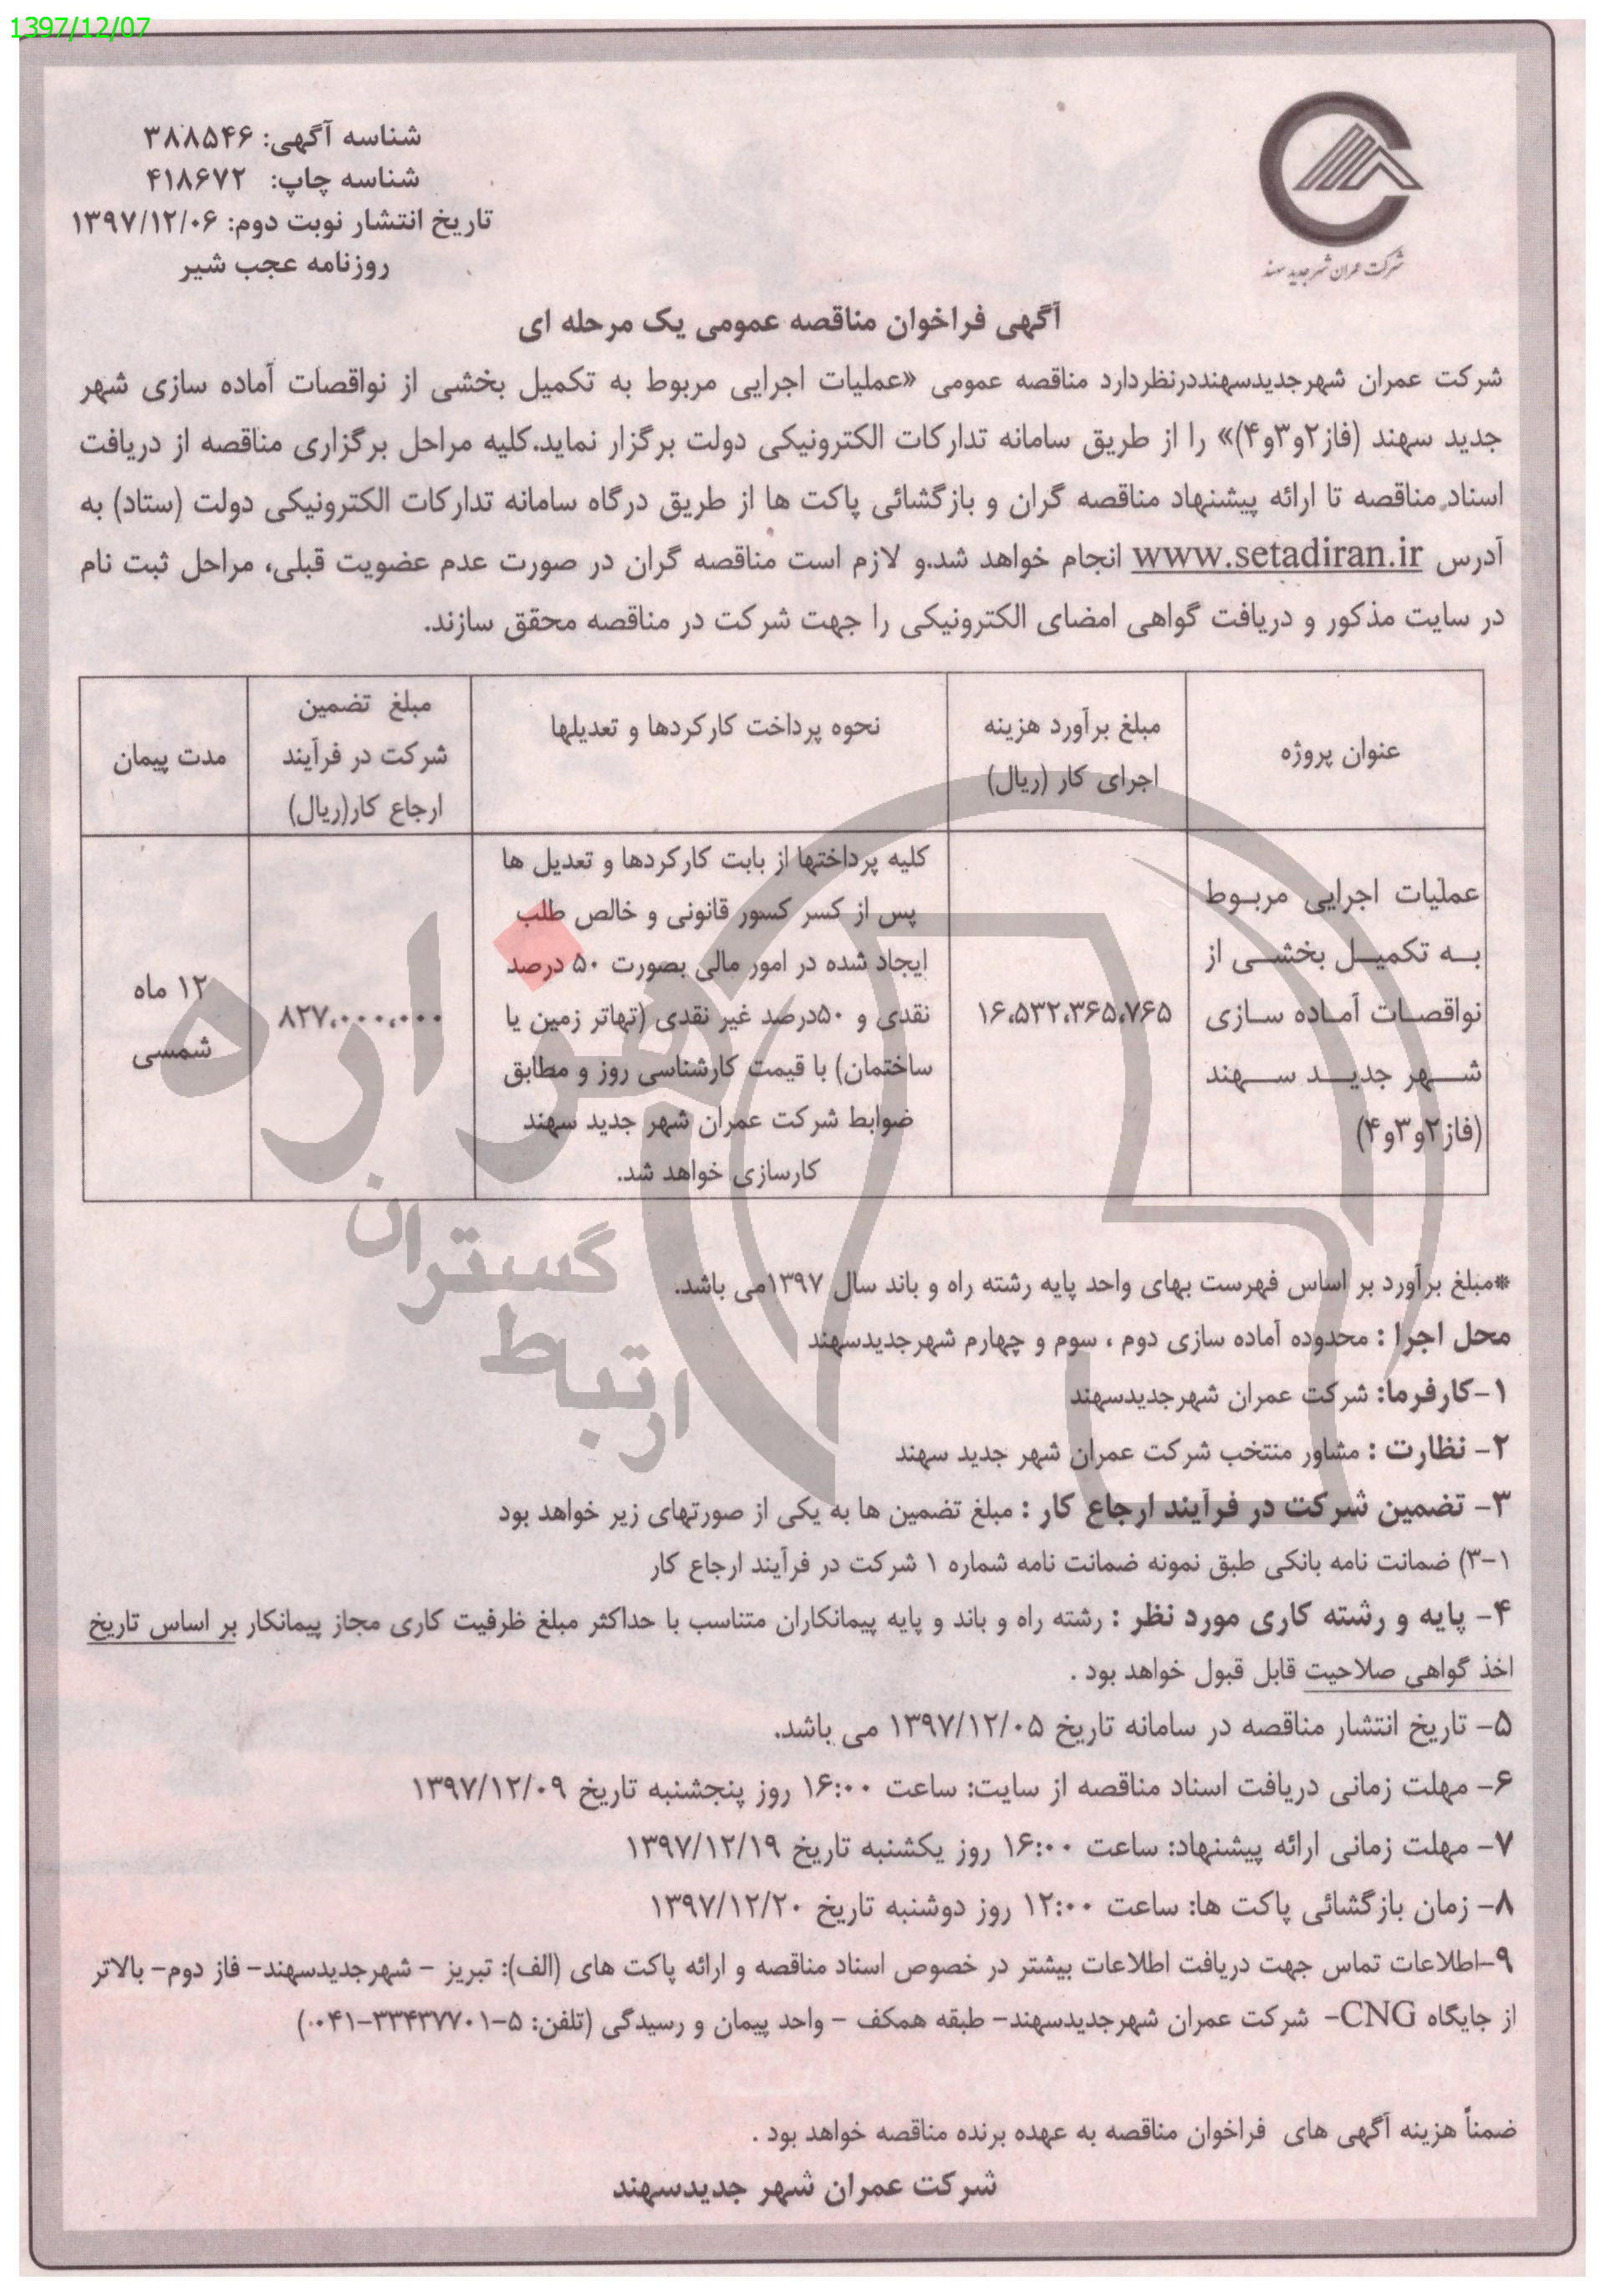 1397/12/07
شرکت عمران شهر جدید سهند
شناسه آگهی: ۳۸۸۵۴۶
شناسه چاپ: ۴۱۸۶۷۲
تاریخ انتشار نوبت دوم: ۱۳۹۷/۱۲/۰۶
روزنامه عجب شیر
آگهی فراخوان مناقصه عمومی یک مرحله ای
شرکت عمران شهرجدیدسهنددرنظردارد مناقصه عمومی «عملیات اجرایی مربوط به تکمیل بخشی از نواقصات آماده سازی شهر
جدید سهند (فاز۲و۳و۴)» را از طریق سامانه تدارکات الکترونیکی دولت برگزار نماید.کلیه مراحل برگزاری مناقصه از دریافت
اسناد مناقصه تا ارائه پیشنهاد مناقصه گران و بازگشائی پاکت ها از طریق درگاه سامانه تدارکات الکترونیکی دولت (ستاد) به
آدرس www.setadiran.ir انجام خواهد شد.و لازم است مناقصه گران در صورت عدم عضویت قبلی، مراحل ثبت نام
در سایت مذکور و دریافت گواهی امضای الکترونیکی را جهت شرکت در مناقصه محقق سازند.
عنوان پروژه
مبلغ برآورد هزینه
اجرای کار (ریال)
نحوه پرداخت کارکردها و تعدیلها
مبلغ تضمین
شرکت در فرآیند
ارجاع کار(ریال)
مدت پیمان
عملیات اجرایی مربوط
به تکمیل بخشی از
نواقصات آماده سازی
شهر جدید سهند
(فاز۲و۳و۴)
۱۶،۵۳۲،۳۶۵،۷۶۵
کلیه پرداختها از بابت کارکردها و تعدیل ها
پس از کسر کسور قانونی و خالص طلب
ایجاد شده در امور مالی بصورت ۵۰ درصد
نقدی و ۵۰درصد غیر نقدی (تهاتر زمین یا
ساختمان) با قیمت کارشناسی روز و مطابق
ضوابط شرکت عمران شهر جدید سهند
کارسازی خواهد شد.
۸۲۷،۰۰۰،۰۰۰
۱۲ ماه
شمسی
هزاره
گستران
ارتباط
*مبلغ برآورد بر اساس فهرست بهای واحد پایه رشته راه و باند سال ۱۳۹۷می باشد.
محل اجرا : محدوده آماده سازی دوم ، سوم و چهارم شهرجدیدسهند
۱-کارفرما: شرکت عمران شهرجدیدسهند
۲- نظارت : مشاور منتخب شرکت عمران شهر جدید سهند
۳- تضمین شرکت در فرآیند ارجاع کار : مبلغ تضمین ها به یکی از صورتهای زیر خواهد بود
۳-۱) ضمانت نامه بانکی طبق نمونه ضمانت نامه شماره ۱ شرکت در فرآیند ارجاع کار
۴- پایه و رشته کاری مورد نظر : رشته راه و باند و پایه پیمانکاران متناسب با حداکثر مبلغ ظرفیت کاری مجاز پیمانکار بر اساس تاریخ
اخذ گواهی صلاحیت قابل قبول خواهد بود .
۵- تاریخ انتشار مناقصه در سامانه تاریخ ۱۳۹۷/۱۲/۰۵ می باشد.
۶- مهلت زمانی دریافت اسناد مناقصه از سایت: ساعت ۱۶:۰۰ روز پنجشنبه تاریخ ۱۳۹۷/۱۲/۰۹
۷- مهلت زمانی ارائه پیشنهاد: ساعت ۱۶:۰۰ روز یکشنبه تاریخ ۱۳۹۷/۱۲/۱۹
۸- زمان بازگشائی پاکت ها: ساعت ۱۲:۰۰ روز دوشنبه تاریخ ۱۳۹۷/۱۲/۲۰
۹-اطلاعات تماس جهت دریافت اطلاعات بیشتر در خصوص اسناد مناقصه و ارائه پاکت های (الف): تبریز - شهرجدیدسهند- فاز دوم- بالاتر
از جایگاه CNG- شرکت عمران شهرجدیدسهند- طبقه همکف - واحد پیمان و رسیدگی (تلفن: ۵-۳۳۴۳۷۷۰۱-۰۴۱)
ضمناً هزینه آگهی های فراخوان مناقصه به عهده برنده مناقصه خواهد بود .
شرکت عمران شهر جدیدسهند